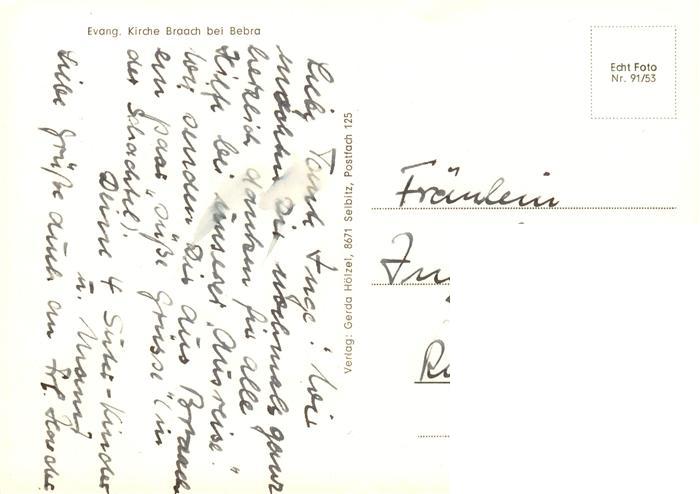 Evang. Kirche Braach bei Bebra
Liebe Tante Inge! Wir
möchten Dir nochmals ganz
herzlich danken für alle
Hilfe bei unserer "Ausreise".
Wir senden Dir aus Braach
ein paar "süße Grüsse" (in
der Schachtel).
Deine 4 Suter-Kinder
u. Mama
Liebe Grüße auch an Frl.
Verlag: Gerda Hölzel, 8671 Selbitz, Postfach 125
Echt Foto
Nr. 91/53
Fräulein